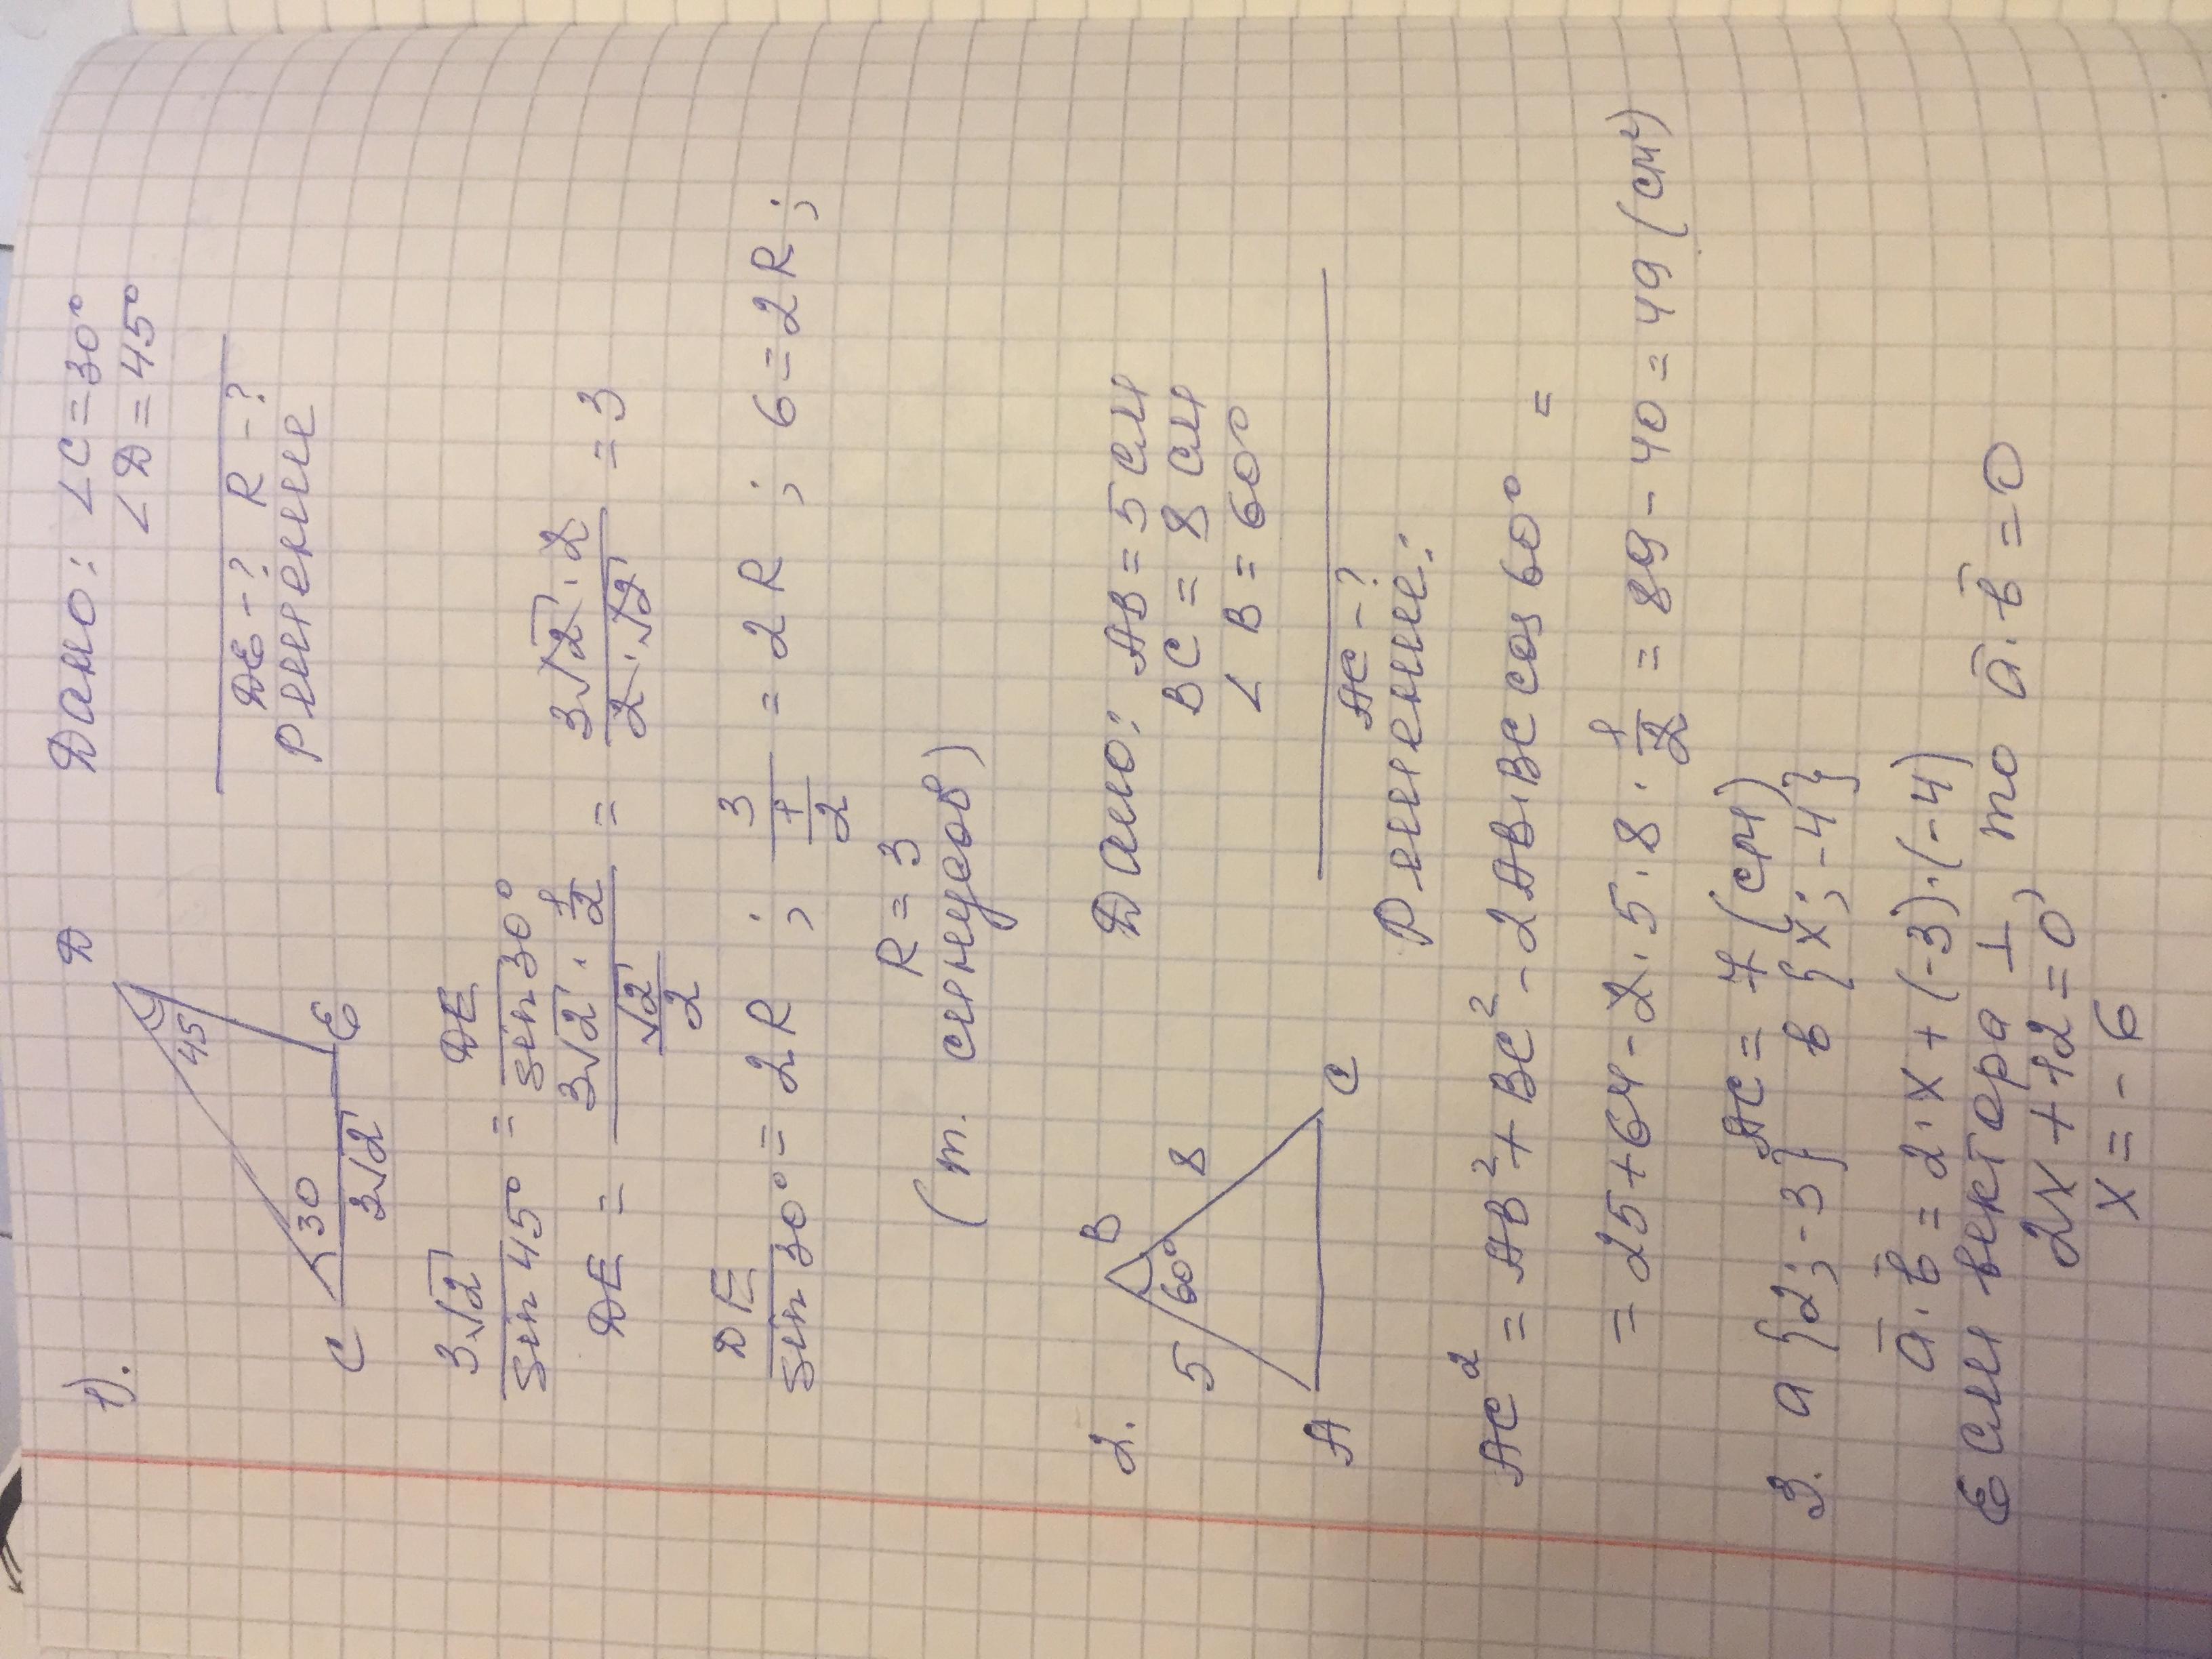 1). D Дано: ∠C=30°
∠D=45°
45
30
C 3√2 E
DE-? R-?
Решение
3√2/sin 45° = DE/sin 30°
DE = (3√2 · 1/2)/(√2/2) = (3√2 · 2)/(2 · √2) = 3
DE/sin 30° = 2R ; 3/(1/2) = 2R ; 6=2R ;
R = 3
(т. синусов)
2. B Дано: AB=5 см
BC = 8 см
∠B = 60°
5 60° 8
A C
AC-?
Решение:
AC² = AB² + BC² - 2AB·BC cos 60° =
= 25+64-2·5·8·1/2 = 89-40=49 (см²)
AC = 7 (см)
3. a {2;-3} b {x;-4}
a̅·b̅ = 2·x + (-3)·(-4)
Если вектора ⊥ то a̅·b̅=0
2x+12=0
x = -6